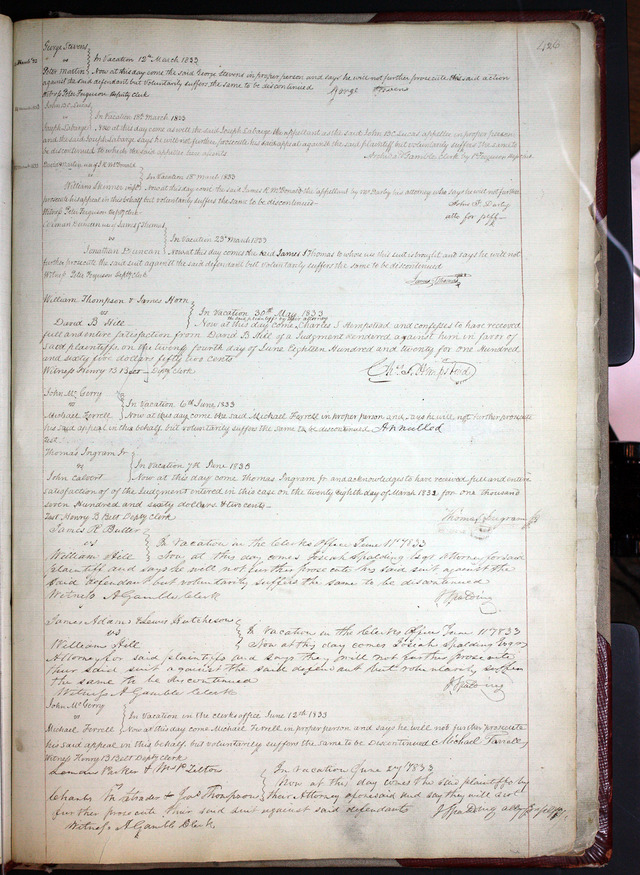 426
George Stevens
vs } In Vacation 12th March 1833
Peter Martin } Now at this day come the said George Stevens in proper person and says he will not further prosecute this said action
against the said defendant but voluntarily suffers the same to be discontinued George Stevens
Peter Ferguson Deputy Clerk
John B C Lucas
vs } In Vacation 18th March 1833
Joseph Labarge } Now at this day come as well the said Joseph Labarge the appellant as the said John B C Lucas appellee in proper person
and the said Joseph Labarge says he will not further prosecute his said appeal against the said plaintiff but voluntarily suffers the same to
be discontinued to which the said appellee here assents
Archibald Gamble Clerk by P Ferguson
James R McDonald
vs } In Vacation 18 March 1833
William Skinner } Now at this day come the said James R McDonald the appellant by Darby his attorney who says he will not further
prosecute his appeal in this behalf but voluntarily suffers the same to be discontinued
Peter Ferguson Depty Clk John F. Darby
atto for plff
Duncan use of James S Thomas
vs } In Vacation 23d March 1833
Jonathan Duncan } Now at this day comes the said James S Thomas to whose use this suit is brought and says he will not
further prosecute the said suit against the said defendant but voluntarily suffers the same to be discontinued
Witness Peter Ferguson Depty Clk James S Thomas
William Thompson & James Horn
vs } In Vacation 30th May 1833
David B Hill } Now at this day come Charles S Hempstead and confesses to have received
full and entire satisfaction from David B Hill of a Judgment rendered against him in favor of
said plaintiffs on the twenty fourth day of June Eighteen Hundred and twenty for one Hundred
and sixty five dollars fifty two cents
Witness Henry B Belt Depty Clerk Chs. S. Hempstead
John Mc Gerry
vs } In Vacation 6th June 1833
Michael Ferrell } Now at this day come the said Michael Farrell in proper person and says he will not further prosecute
his said appeal in this behalf but voluntarily suffers the same to be discontinued Annulled
Test
Thomas Ingram Jr
vs } In Vacation 7th June 1833
John Calvert } Now at this day come Thomas Ingram Jr and acknowledges to have received full and entire
satisfaction of of the Judgment entered in this case on the twenty eighth day of March 1832 for one thousand
seven Hundred and sixty dollars & two cents
Test Henry B Belt Depty Clerk Thomas Ingram Jr
James R Butler
vs } In Vacation in the Clerks Office June 11th 1833
William Hill } Now at this day comes Josiah Spalding Esqr Attorney for said
plaintiff and says he will not further prosecute his said suit against the
said defendant but voluntarily suffers the same to be discontinued
Witness A Gamble Clerk J Spalding
James Adams & Lewis Hutcheson
vs } In Vacation in the Clerks Office June 11th 1833
William Hill } Now at this day comes Josiah Spalding Esqr
Attorney for said plaintiffs and says they will not further prosecute
their said suit against the said defendant but voluntarily suffers
the same to be discontinued
Witness A Gamble Clerk J Spalding
John Mc Gerry
vs } In Vacation in the clerks office June 12th 1833
Michael Ferrell } Now at this day come Michael Farrell in proper person and says he will not further prosecute
his said appeal in this behalf but voluntarily suffers the same to be Discontinued Michael Farrell
Witness Henry B Belt Depty Clerk
& Tilton
vs } In Vacation June 27th 1833
Charles Strader & Thompson } Now at this day comes the said plaintiffs by
their Attorney aforesaid and say they will not
further prosecute their said suit against said defendants J Spalding atty for plffs
Witness A Gamble Clerk